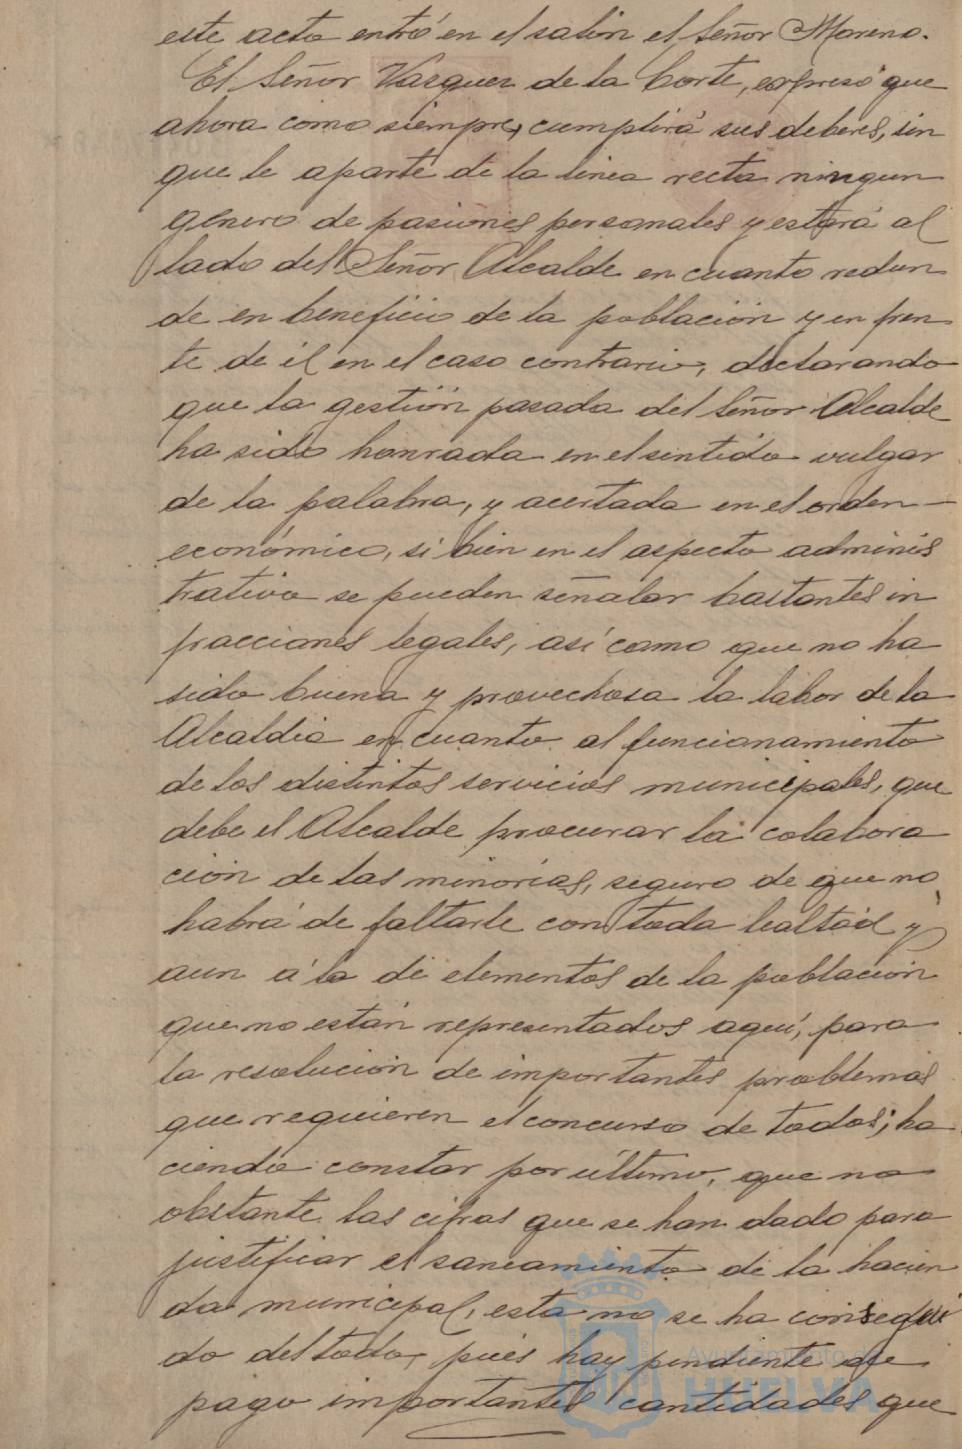 este acto entró en el salón el Señor Moreno.
El Señor Vazquez de la Corte, expresó que
ahora como siempre, cumplirá sus deberes, sin
que le aparte de la linea recta ningun
género de pasiones personales y estará al
lado del Señor Alcalde en cuanto redun
de en beneficio de la población y en fren
te de él en el caso contrario, declarando
que la gestión pasada del Señor Alcalde
ha sido honrada en el sentido vulgar
de la palabra, y acertada en el orden —
económico, si bien en el aspecto adminis
trativo se pueden señalar bastantes in
fracciones legales, así como que no ha
sido buena y provechosa la labor de la
Alcaldia en cuanto al funcionamiento
de los distintos servicios municipales, que
debe el Alcalde procurar la colabora
ción de las minorías, seguro de que no
habrá de faltarle con toda lealtad y
aun á la de elementos de la población
que no están representados aquí, para
la resolución de importantes problemas
que requieren el concurso de todos; ha
ciendo constar por último, que no
obstante las cifras que se han dado para
justificar el saneamiento de la hacien
da municipal, esta no se ha consegui
do del todo, pues hay pendiente de
pago importantes cantidades que
Ayuntamiento de
HUELVA